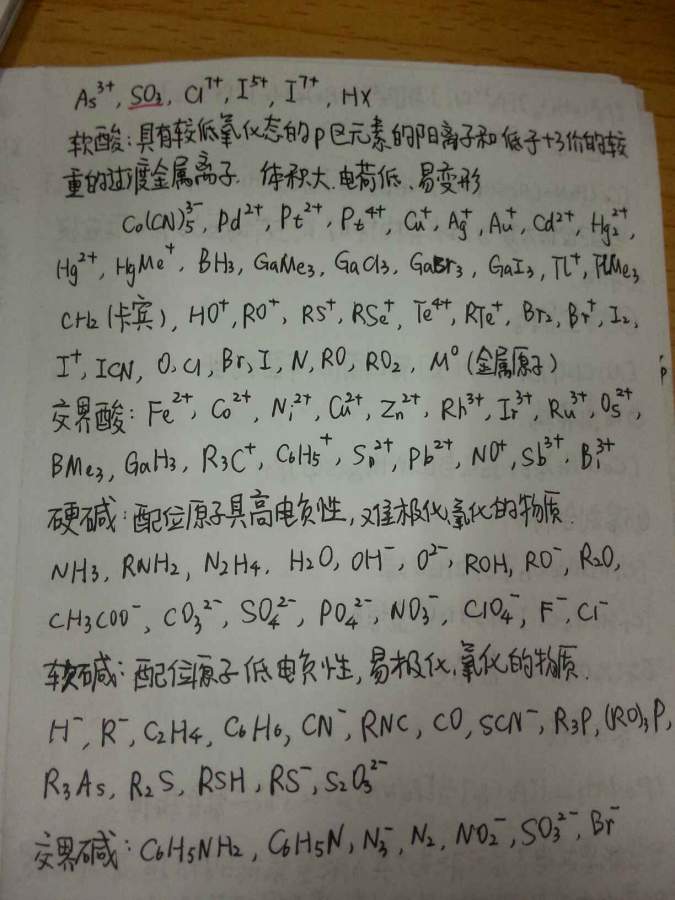 As³⁺, SO₃, Cl⁷⁺, I⁵⁺, I⁷⁺, HX
软酸：具有较低氧化态的p区元素的阳离子和低于+3价的较
重的过渡金属离子. 体积大、电荷低、易变形
Co(CN)₅³⁻, Pd²⁺, Pt²⁺, Pt⁴⁺, Cu⁺, Ag⁺, Au⁺, Cd²⁺, Hg₂²⁺,
Hg²⁺, HgMe⁺, BH₃, GaMe₃, GaCl₃, GaBr₃, GaI₃, Tl⁺, TlMe₃
CH₂(卡宾), HO⁺, RO⁺, RS⁺, RSe⁺, Te⁴⁺, RTe⁺, Br₂, Br⁺, I₂,
I⁺, ICN, O, Cl, Br, I, N, RO, RO₂, M⁰(金属原子)
交界酸：Fe²⁺, Co²⁺, Ni²⁺, Cu²⁺, Zn²⁺, Rh³⁺, Ir³⁺, Ru³⁺, Os²⁺,
BMe₃, GaH₃, R₃C⁺, C₆H₅⁺, Sn²⁺, Pb²⁺, NO⁺, Sb³⁺, Bi³⁺
硬碱：配位原子具高电负性, 难极化、氧化的物质.
NH₃, RNH₂, N₂H₄, H₂O, OH⁻, O²⁻, ROH, RO⁻, R₂O,
CH₃COO⁻, CO₃²⁻, SO₄²⁻, PO₄²⁻, NO₃⁻, ClO₄⁻, F⁻, Cl⁻
软碱：配位原子低电负性, 易极化、氧化的物质.
H⁻, R⁻, C₂H₄, C₆H₆, CN⁻, RNC, CO, SCN⁻, R₃P, (RO)₃P,
R₃As, R₂S, RSH, RS⁻, S₂O₃²⁻
交界碱：C₆H₅NH₂, C₆H₅N, N₃⁻, N₂, NO₂⁻, SO₃²⁻, Br⁻